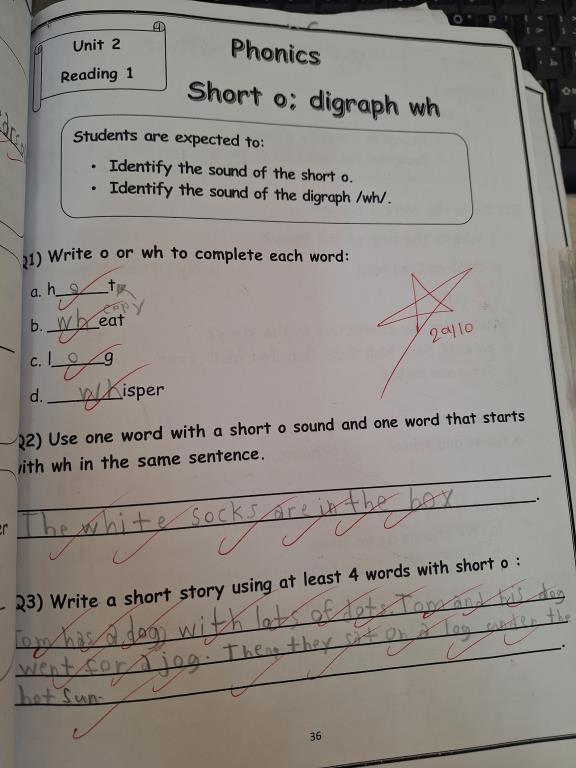 Unit 2
Reading 1
Phonics
Short o; digraph wh
Students are expected to:
• Identify the sound of the short o.
• Identify the sound of the digraph /wh/.
Q1) Write o or wh to complete each word:
a. h o t
copy
b. wheat
c. l o g
d. whisper
20/10
Q2) Use one word with a short o sound and one word that starts
with wh in the same sentence.
The white socks are in the box.
Q3) Write a short story using at least 4 words with short o :
Tom has a dog with lots of dots. Tom and his dog
went for a jog. Then they sat on a log under the
hot sun.
36